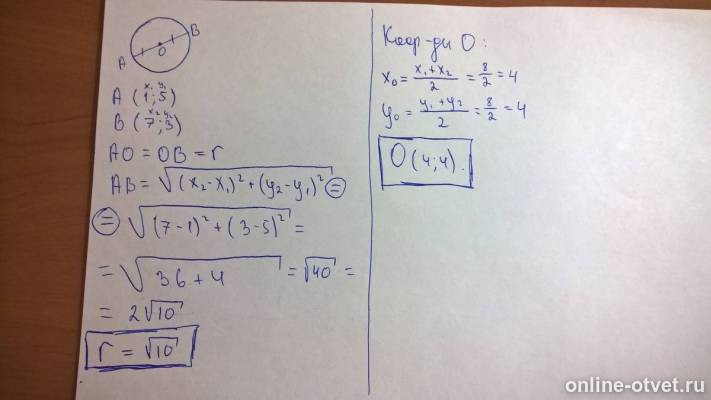 A O B
x₁ y₁
A (1;5)
x₂ y₂
B (7;3)
AO = OB = r
AB = √((x₂-x₁)² + (y₂-y₁)²) =
= √((7-1)² + (3-5)²) =
= √(36+4) = √40 =
= 2√10
r = √10
Коор-ды O:
x₀ = (x₁+x₂)/2 = 8/2 = 4
y₀ = (y₁+y₂)/2 = 8/2 = 4
O (4;4).
online-otvet.ru